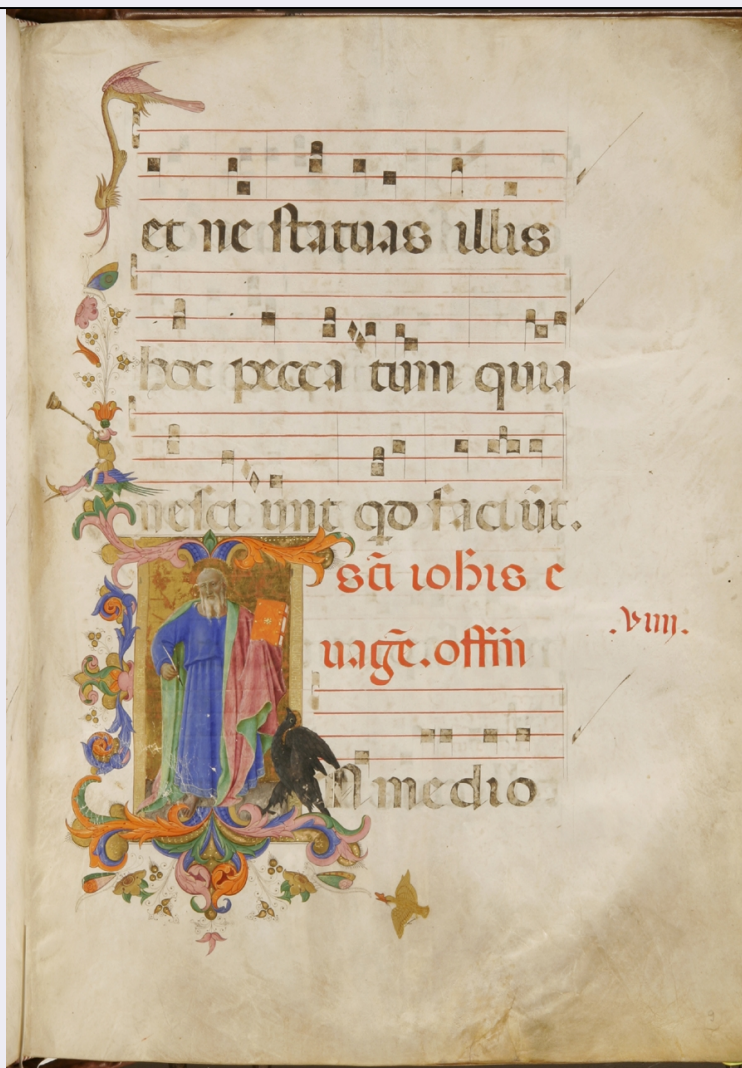 et ne statuas illis
hoc pecca tum quia
nesci unt qd faciūt.
sc̄i ioh̄is e
uāgē. offm̄
.viiij.
N medio